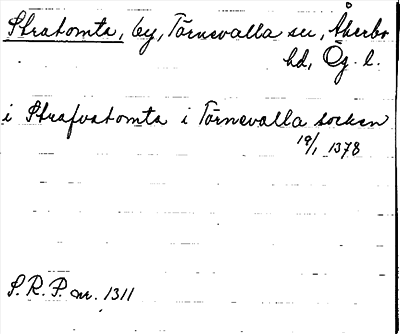 Stratomta, by, Törnevalla sn, Åkerbo
hd, Ög. l.
i Strafvatomta i Törnevalla socken
19/1 1378
S.R.P. nr. 1311